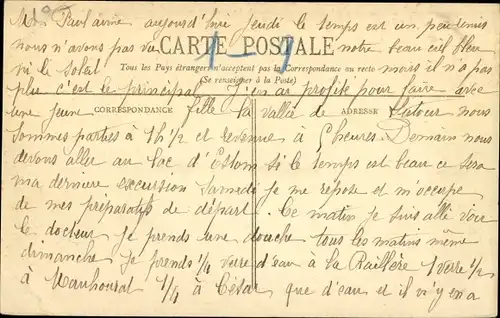 Mon Paul aimé aujourd'hui jeudi le temps est un peu terni
nous n'avons pas vu notre beau ciel bleu
CARTE POSTALE
Tous les Pays étrangers n'acceptent pas la Correspondance au recto
(Se renseigner à la Poste)
ni le soleil mais il n'a pas
plu c'est le principal. J'en ai profité pour faire avec
CORRESPONDANCE
ADRESSE
une jeune fille la vallée de Lutour nous
sommes parties à 1h 1/2 et revenue à 6 heures. Demain nous
devons aller au lac d'Estom si le temps est beau ce sera
ma dernière excursion Samedi je me repose et m'occupe
de mes préparatifs de départ. Ce matin je suis allé voir
le docteur je prends une douche tous les matins même
dimanche je prends 1/4 verre d'eau à la Raillère 1 verre 1/2
à Mauhourat 1/4 à César que d'eau et il n'y en a